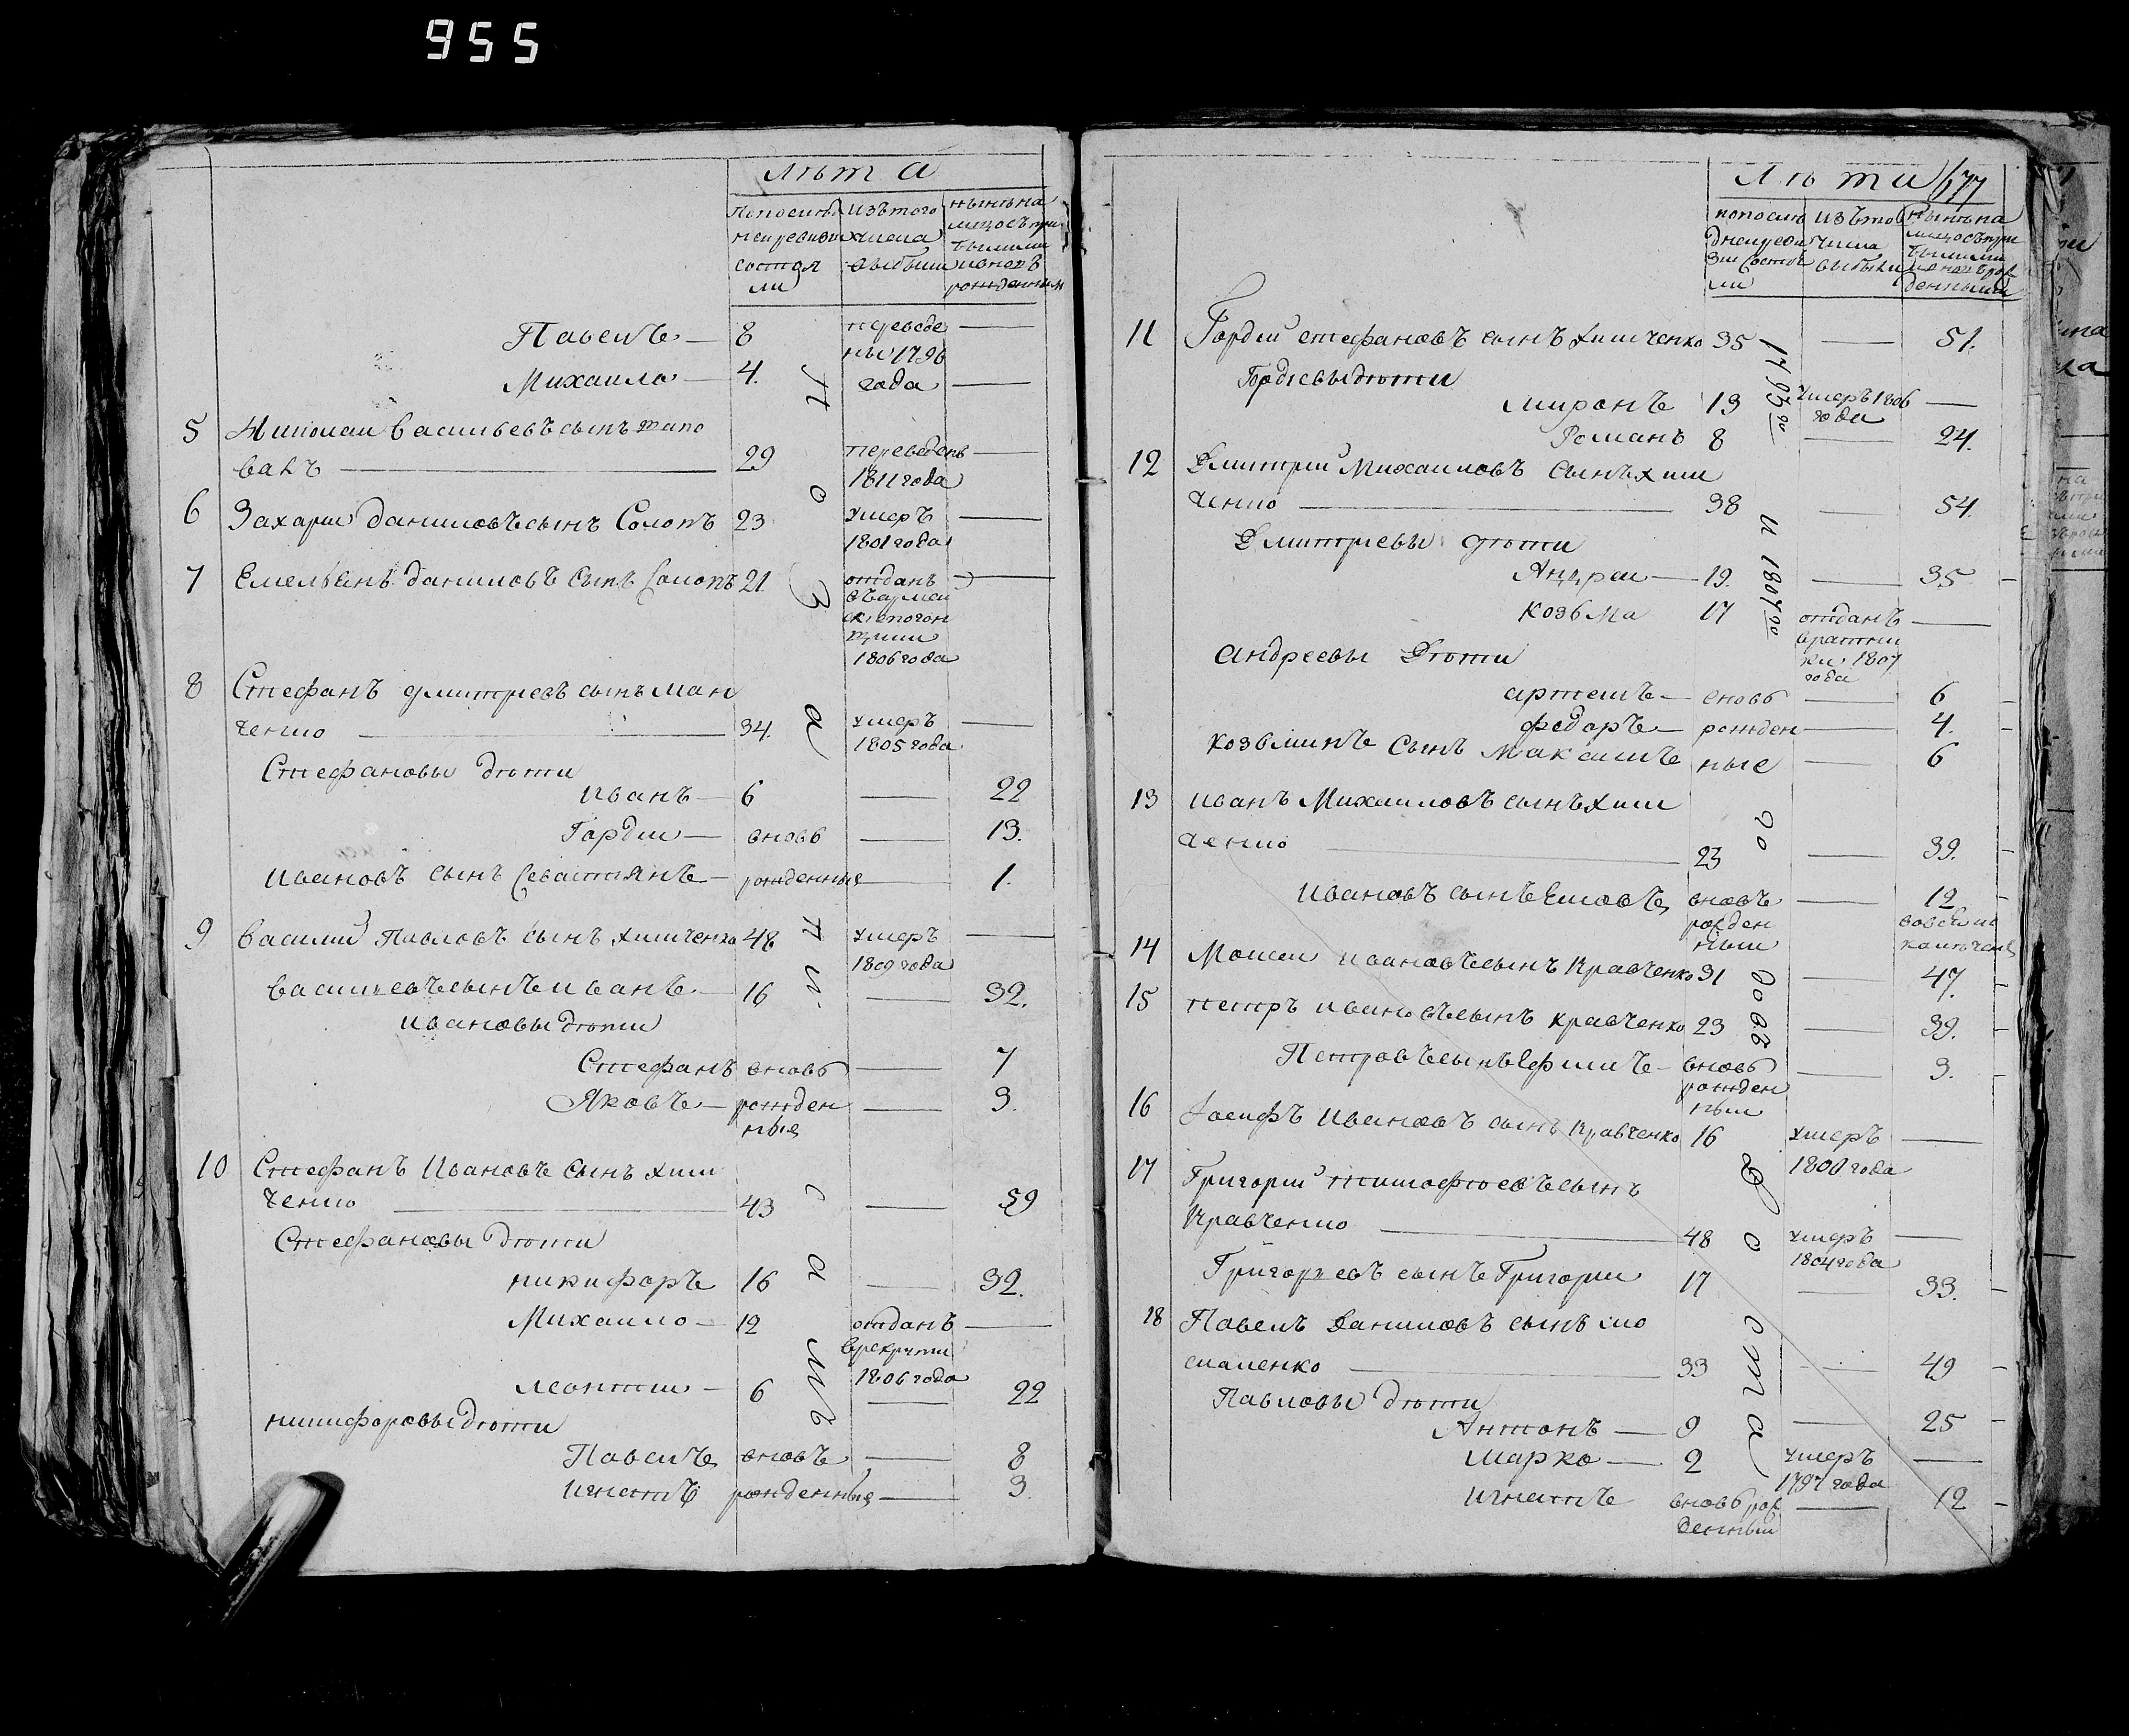 955
лѣта
попослѣд изътого нынѣна
ней ревизи числа лицосъпри
состоя выбыли былыми
ли ивновь
рожденным
Павелъ — 8 переведе —
ны 1796
Михаило — 4. года —
5 Николай Васильевъ сынъ
29 переведенъ —
1811 года
6 Захарий даниловъ сынъ Солопъ 23 умеръ —
1801 года
7 Емельянъ даниловъ сынъ Солопъ 21 отданъ —
1806 года
8 Стефанъ дмитриевъ сынъ Ман
ченко — 34. умеръ —
1805 года
Стефановы дѣти
иванъ — 6 — 22
Гордий — вновь — 13.
ивановъ сынъ Севастиянъ — рожденныя — 1.
9 василий Павловъ сынъ химченко 48 умеръ —
1809 года
васильевъ сынъ иванъ — 16 — 32.
ивановы дѣти
Стефанъ вновь — 7
Яковъ — рожден — 3.
ныя
10 Стефанъ Ивановъ сынъ хим
ченко — 43 — 59
Стефановы дѣти
никифоръ 16 — 32.
Михаило — 12 отданъ —
врекруты
1806 года
леонтий — 6 — 22
никифоровы дѣти
Павелъ вновь — 8
игнатъ рожденныя — 3
лѣта 177
попослѣ изътого нынѣна
дней реви числа лицосъпри
зии состоя выбыли былыми
ли ивновьрож
денными
11 Гордий стефановъ сынъ химченко 35 — 51.
Гордѣевы дѣти
миронъ 13 умеръ 1806 —
года
Романъ 8 — 24.
12 Дмитрий Михаиловъ сынъ хим
ченко — 38 — 54.
Дмитриевы дѣти
Андрей — 19. — 35
козьма 17 отданъ —
вратни
ки 1807
года
андреевы дѣти
артемъ — вновь — 6
федоръ — рожден — 4.
козьминъ сынъ Максимъ ные — 6
13 иванъ Михаиловъ сынъ хим
ченко — 23 — 39.
ивановъ сынъ вновь — 12
рожден
ный
14 Моисей ивановъ сынъ Кравченко 31 — 47.
15 петръ ивановъ сынъ кравченко 23 — 39.
Петровъ сынъ Ефимъ — вновь — 3.
рожден
ный
16 Иосифъ Ивановъ сынъ Кравченко 16 умеръ —
1800 года
17 Григорий тимофѣевъ сынъ
Кравченко — 48 умеръ —
1804 года
Григорьевъ сынъ Григорий 17 — 33.
18 Павелъ Даниловъ сынъ мо
скаленко — 33 — 49
Павловы дѣти
Антонъ — 9 — 25
Марко — 2 умеръ —
1797 года
Игнатъ вновь рож — 12
денный